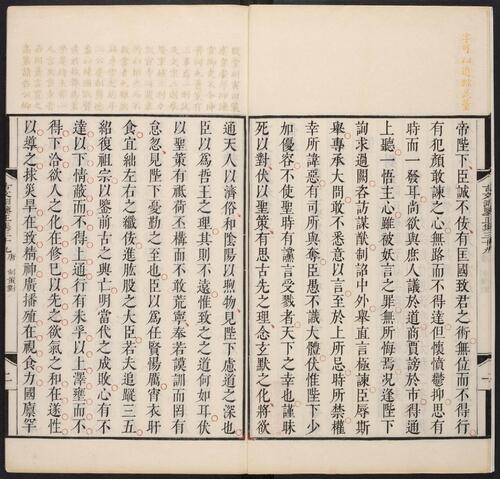 帝陛下臣誠不佞有匡國致君之術無位而不得行
有犯顏敢諫之心無路而不得達但懷憤鬱抑思有
時而一發耳尚欲與庶人議於道商賈謗於市得通
上聽一悟主心雖被妖言之罪無所悔焉況逢陛下
詢求過闕咨訪謀猷制詔中外舉直言極諫臣辱斯
舉專承大問敢不悉意以言至於上所忌時所禁權
幸所諱惡有司所與奪臣愚不識大體伏惟陛下少
加優容不使聖時有讜言受戮者天下之幸也謹昧
死以對伏以聖策有思古先之理念玄默之化將欲
通天人以濟俗和陰陽以煦物見陛下慮道之深也
臣以為哲王之理其則不遠惟致之之道何如耳伏
以聖策有祗荷丕構而不敢荒寧奉若謨訓而罔有
怠忽見陛下憂勤之至也臣以為任賢惕厲宵衣旰
食宜絀左右之纖佞進肱股之大臣若夫追蹤三五
紹復祖宗以鑒前古之興亡明當代之成敗心有不
達以下情蔽而不得上通行有未孚以上澤壅而不
得下洽欲人之化在修已以先之欲氣之和在遂性
以導之救災旱在致精神廣播殖在視食力國廩罕